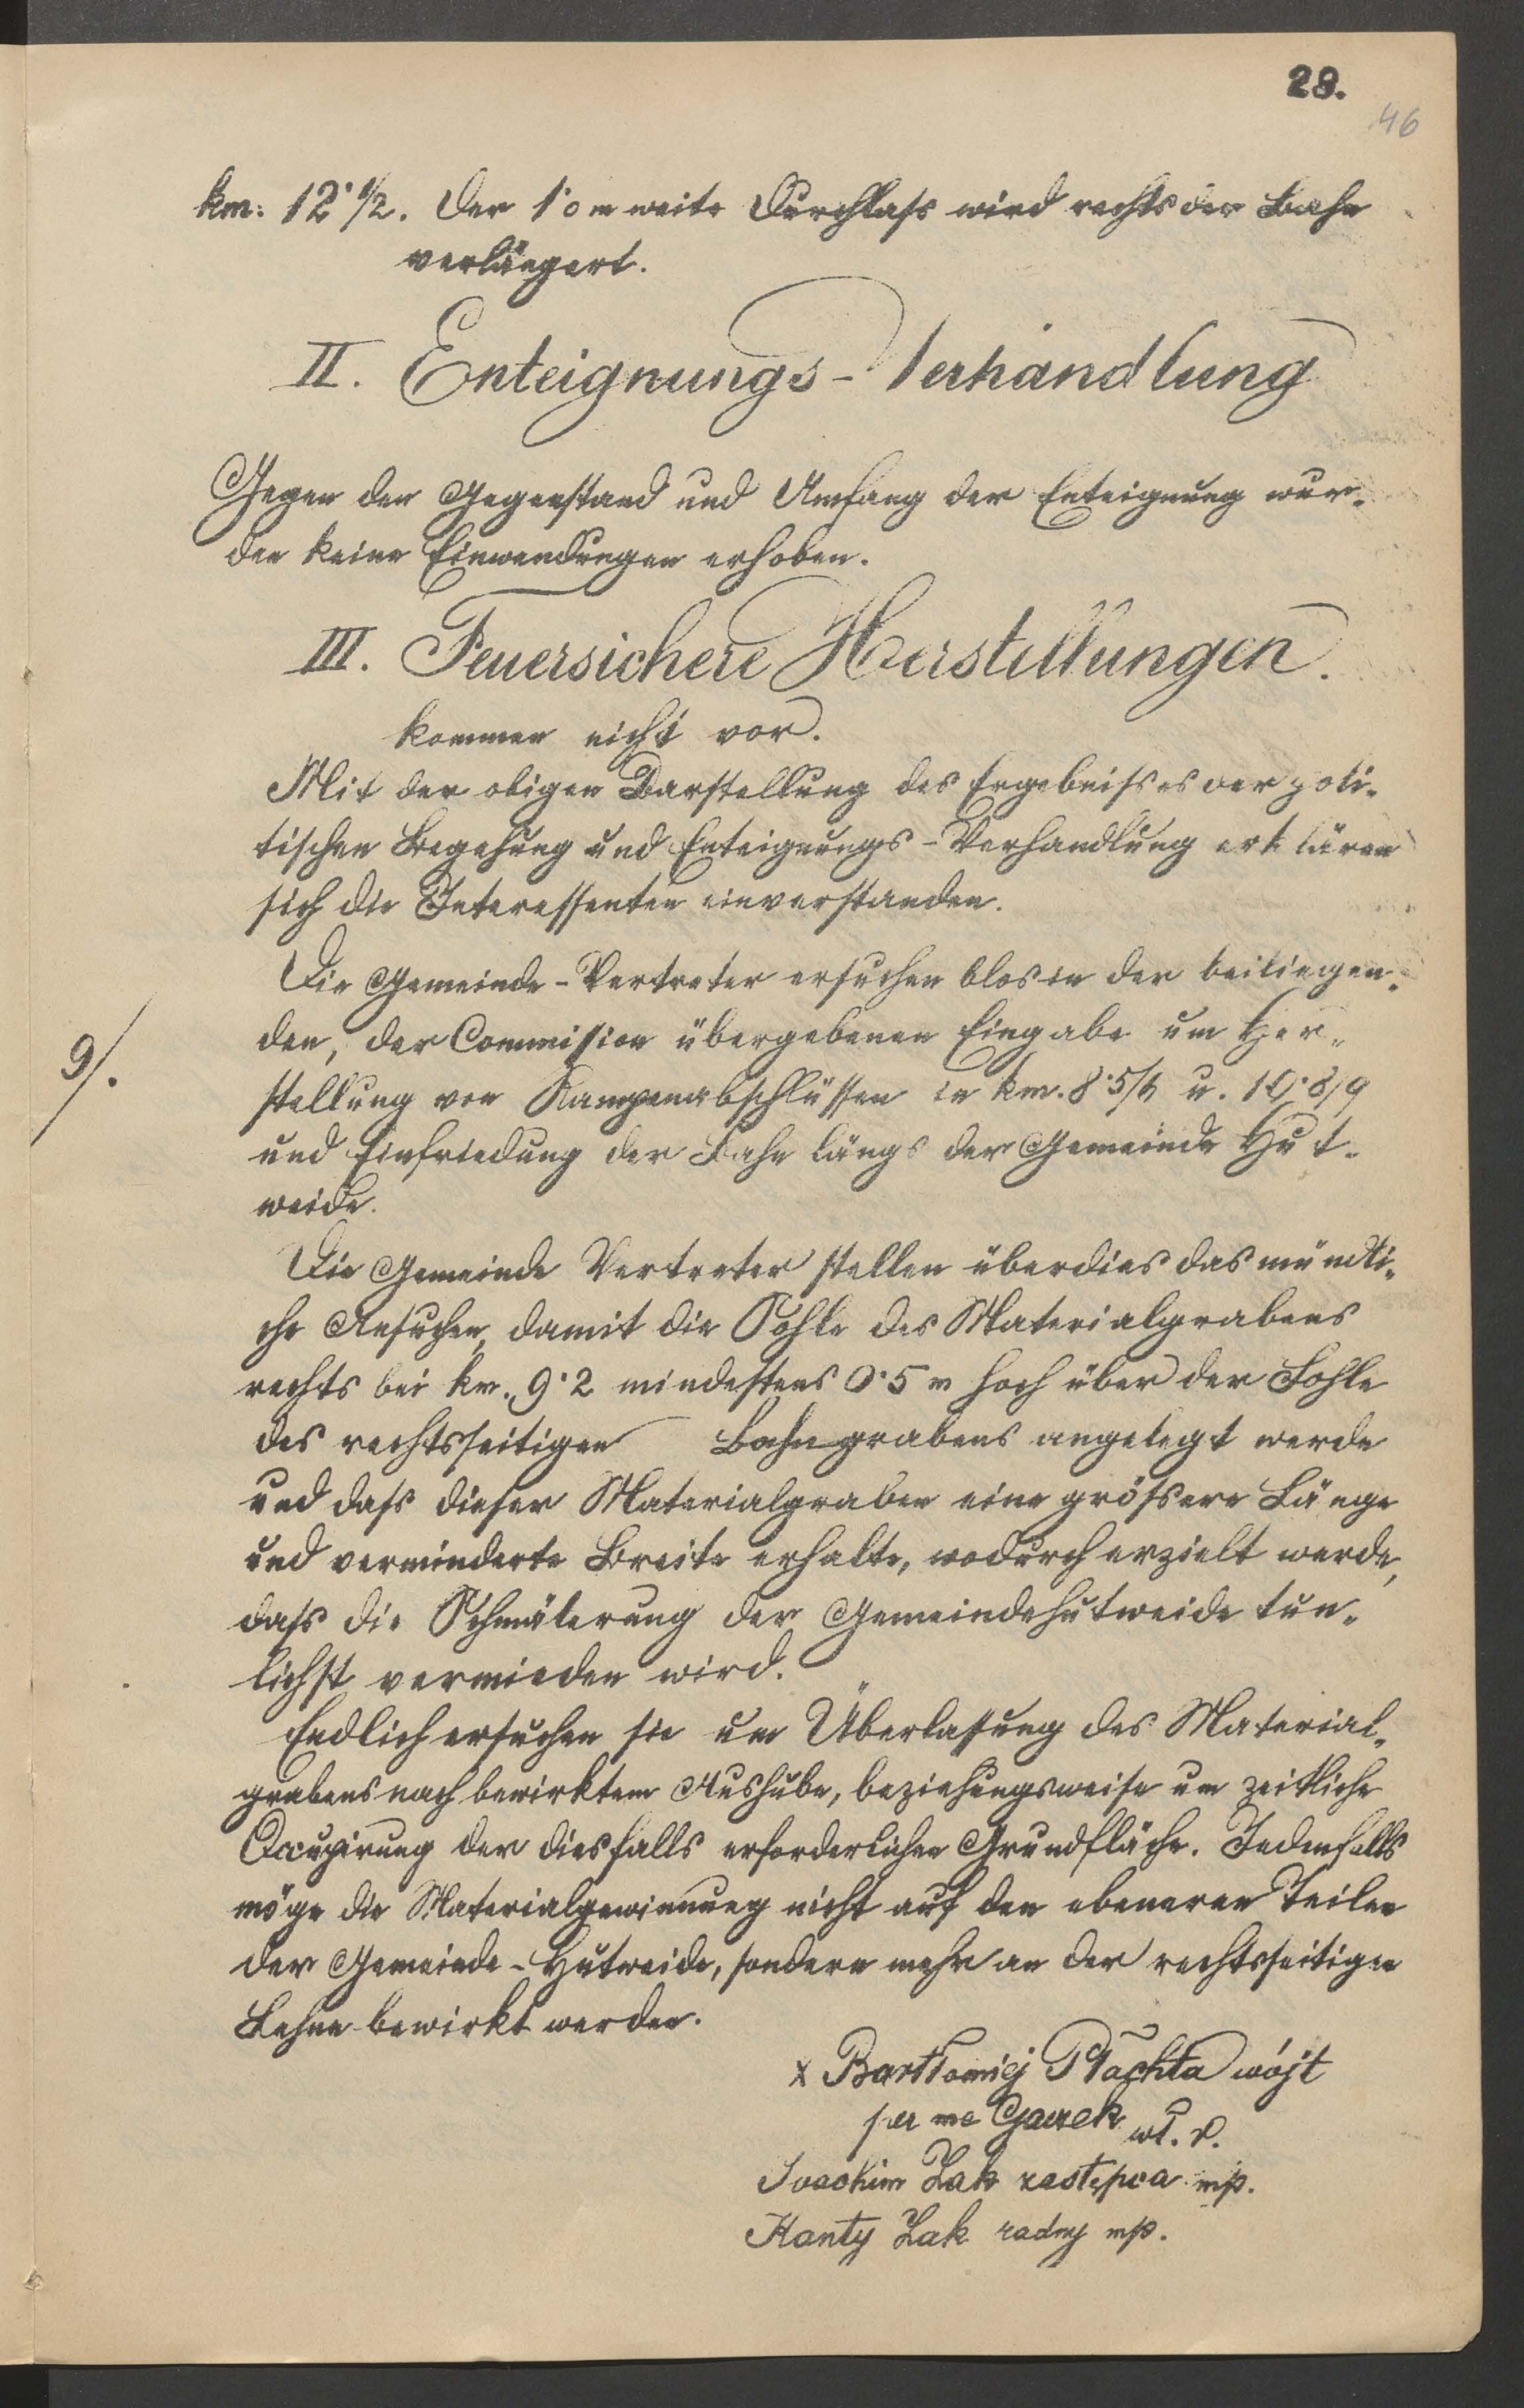 28.
46
km: 12·1/2. Der 1·0 m weite Durchlass wird rechts der Bahn
verlängert.
II. Enteignungs-Verhandlung
Gegen den Gegenstand und Umfang der Enteignung wur-
den keine Einwendungen erhoben.
III. Feuersichere Herstellungen.
kommen nicht vor.
Mit der obigen Darstellung des Ergebnisses der poli-
tischen Begehung und Enteignungs-Verhandlung erklären
sich die Interessenten einverstanden.
Die Gemeinde-Vertreter ersuchen blos in der beiliegen-
den, der Commission übergebenen Eingabe um Her-
9/.
stellung von Rampenabschlüssen in km. 8·5/6 u. 10·8/9
und Einfriedung der Bahn längs der Gemeinde Hut-
weide.
Die Gemeinde Vertreter stellen überdies das mündli-
che Ansuchen, damit die Sohle des Materialgrabens
rechts bei km. 9·2 mindestens 0·5 m hoch über der Sohle
des rechtsseitigen Bahngrabens angelegt werde
und dass dieser Materialgraben eine grössere Länge
und verminderte Breite erhalte, wodurch erzielt werde,
dass die Schmälerung der Gemeindehutweide tun-
lichst vermieden wird.
Endlich ersuchen sie um Überlassung des Material-
grabens nach bewirktem Aushube, beziehungsweise um zeitliche
Occupirung der diesfalls erforderlichen Grundfläche. Jedenfalls
möge die Materialgewinnung nicht auf den ebeneren Teilen
der Gemeinde-Hutweide, sondern mehr an der rechtsseitigen
Lehne bewirkt werden.
x Bartłomiej Płachta wójt
per me Gawek wł. r.
Joachim Żak zastępca mp.
Kanty Żak radny mp.